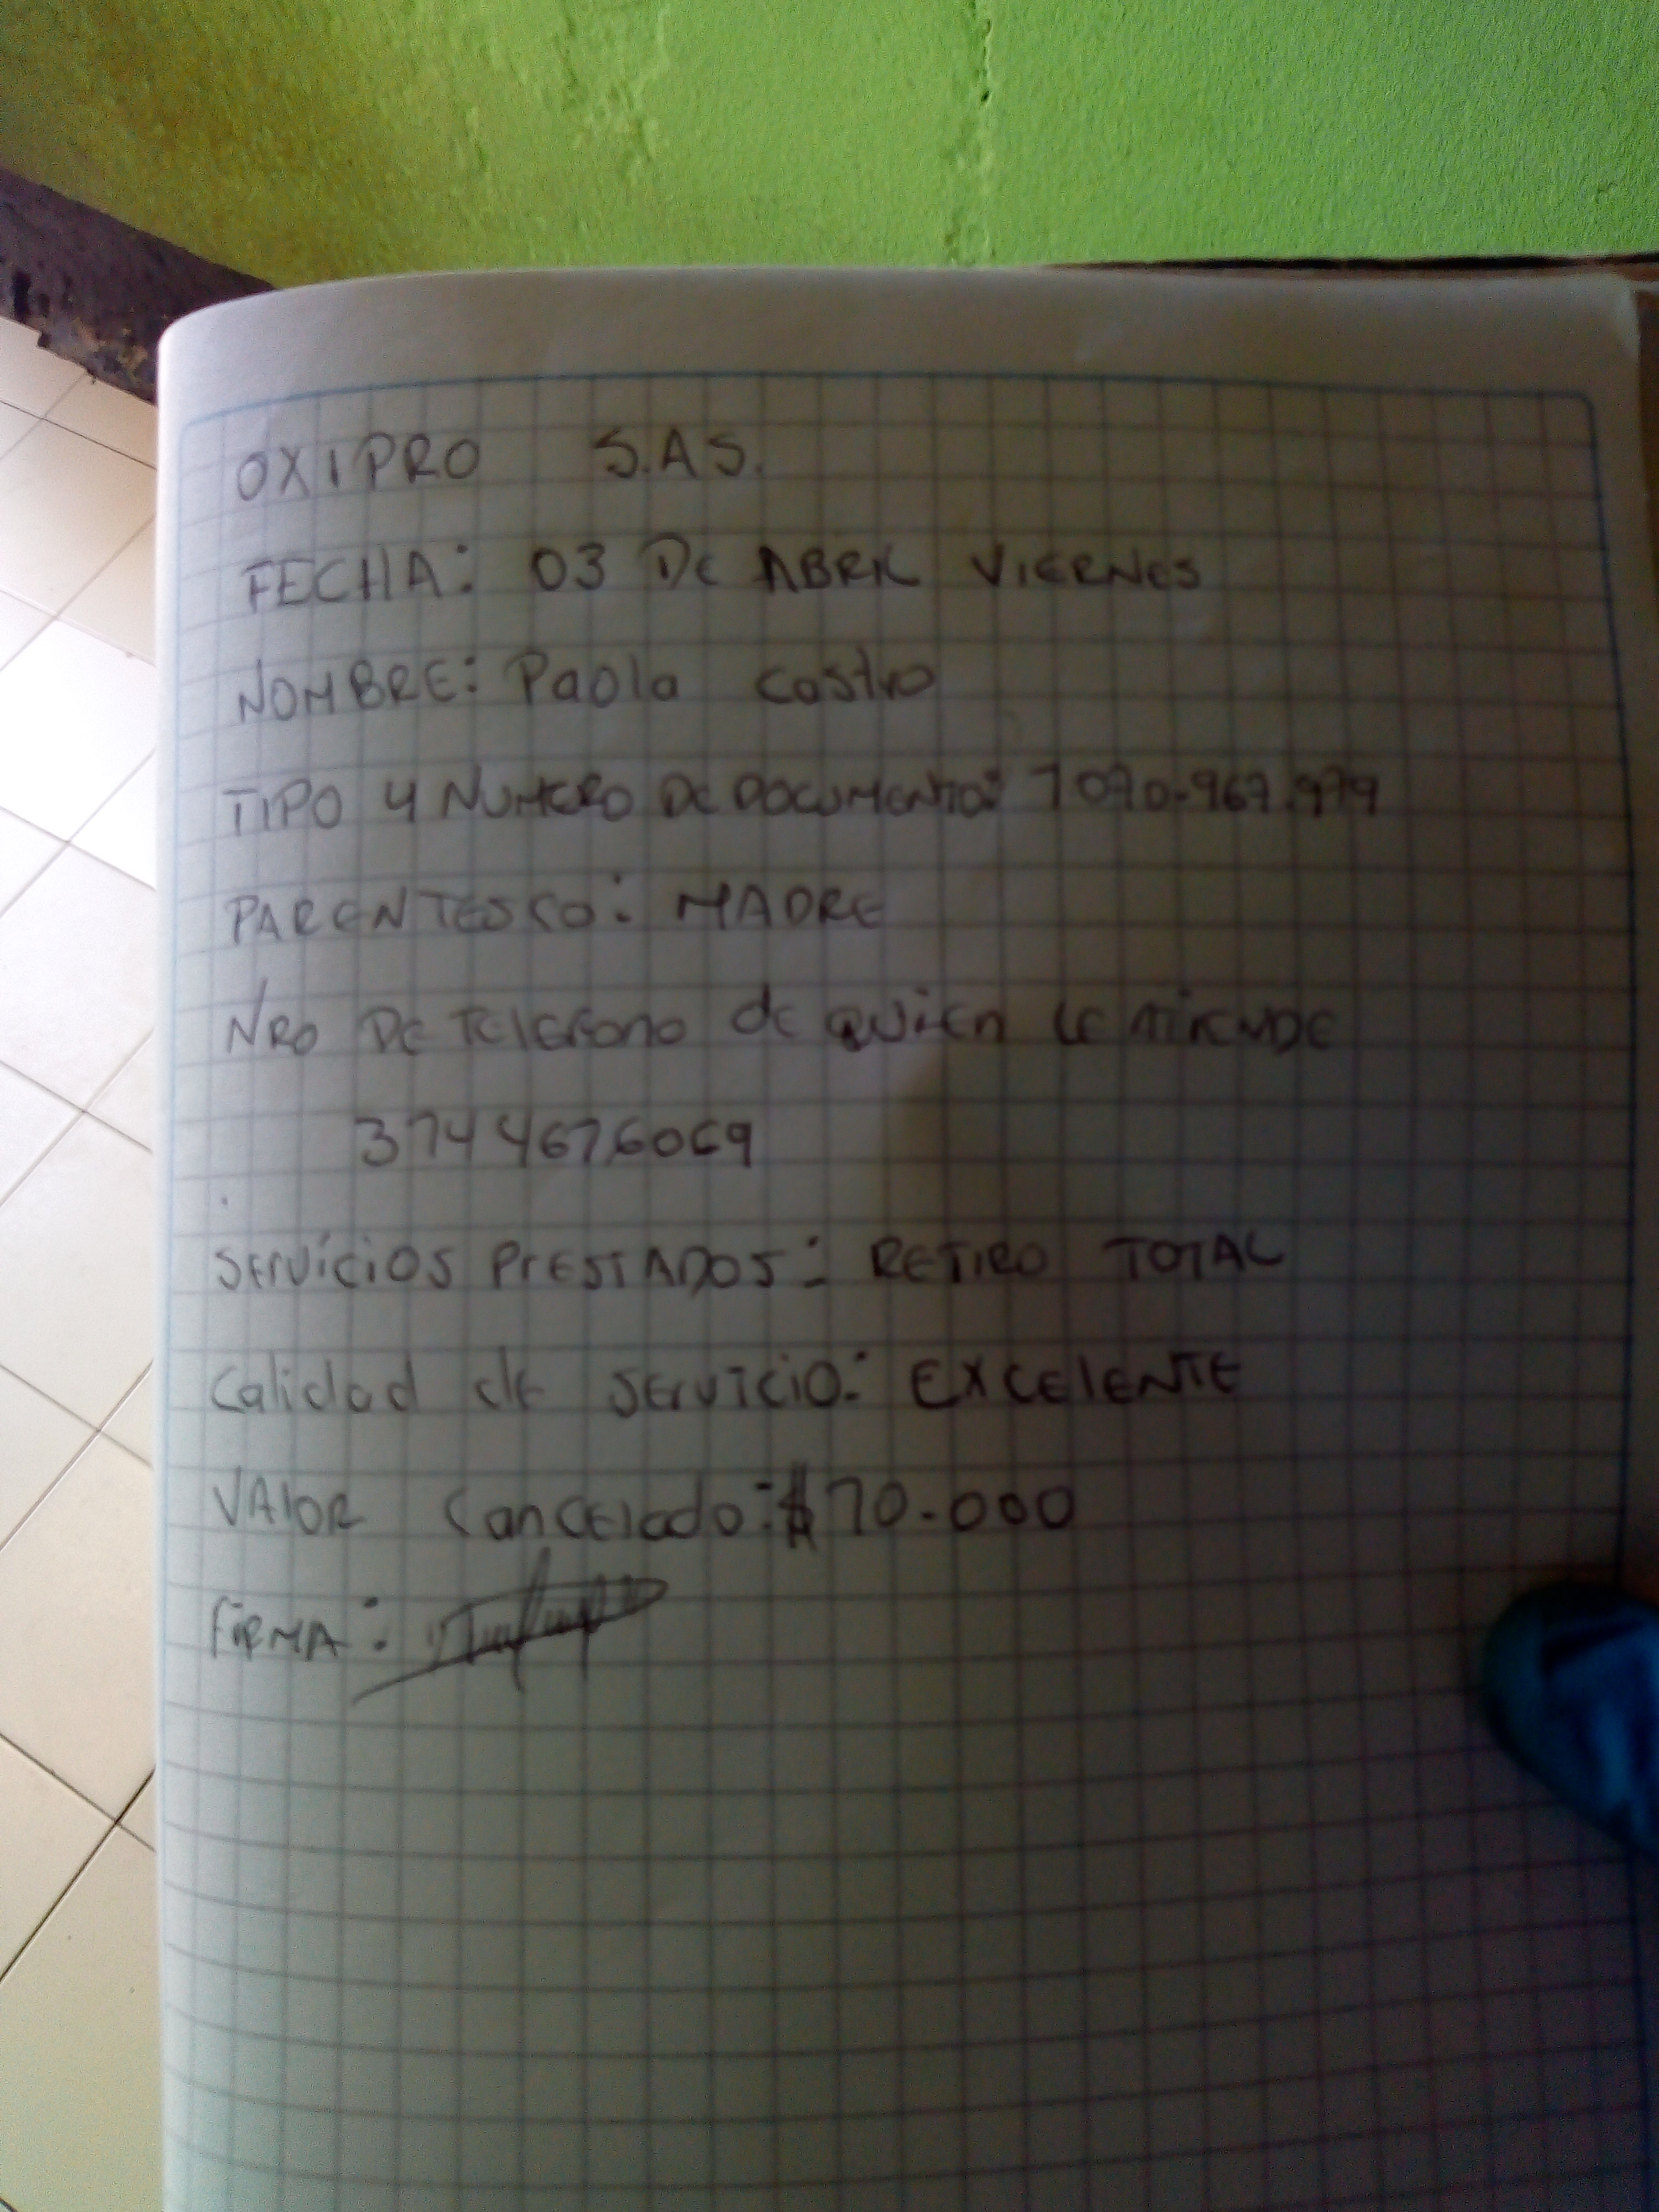 OXIPRO S.A.S.
FECHA: 03 DE ABRIL VIERNES
NOMBRE: Paola Castro
TIPO Y NUMERO DE DOCUMENTO: 1070.967.979
PARENTESCO: MADRE
NRO DE TELEFONO de QUIEN LE ATIENDE
3144676069
SERVICIOS PRESTADOS: RETIRO TOTAL
Calidad de SERVICIO: EXCELENTE
VALOR Cancelado: $70.000
FIRMA: